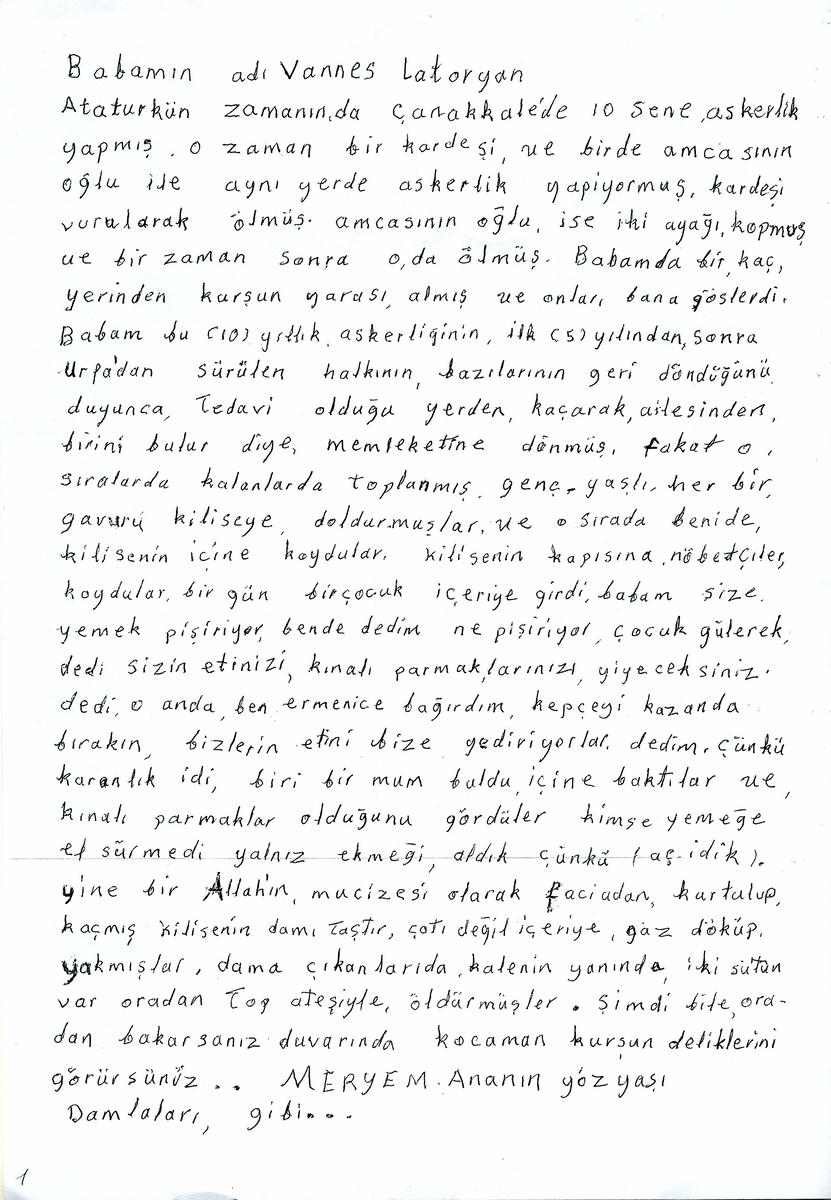 Babamın adı Vannes Latoryan
Ataturkün zamanın,da çanakkale'de 10 sene ,askerlik
yapmış . o zaman bir kardeşi, ve birde amcasının
oğlu ile aynı yerde askerlik yapiyormuş, kardeşi
vurularak ölmüş. amcasının oğlu, ise iki ayağı, kopmuş
ve bir zaman sonra o,da ölmüş. Babamda bir, kaç,
yerinden kurşun yarası, almış ve onları, bana gösterdi.
Babam bu (10) yıllık, askerliğinin, ilk (5) yılından, sonra
Urfa'dan sürülen halkının, bazılarının geri döndüğünü,
duyunca, Tedavi olduğu yerden, kaçarak, ailesinden,
birini bulur diye, memleketine dönmüş, fakat o,
sıralarda kalanlarda toplanmış, genç-yaşlı, her bir,
gavurü kiliseye, doldurmuşlar, ve o sırada benide,
kilisenin içine koydular. kilisenin kapısına, nöbetçiler,
koydular, bir gün birçocuk içeriye girdi, babam size.
yemek pişiriyor, bende dedim ne pişiriyor, çocuk gülerek,
dedi sizin etinizi, kınalı parmak,larınızı, yiyeceksiniz.
dedi, o anda, ben ermenice bağırdım, kepçeyi kazanda
bırakın, bizlerin etini bize yediriyorlar. dedim. çünkü
karanlık idi, biri bir mum buldu, içine baktılar ve,
kınalı parmaklar olduğunu gördüler kimse yemeğe
el sürmedi yalnız ekmeği, aldık çünkü (aç-idik).
yine bir Allahın, mucizesi olarak faciadan, kurtulup,
kaçmış kilisenin damı Taştır, çatı değil içeriye, gaz döküp,
yakmışlar, dama çıkanlarıda, kalenin yanında, iki sütun
var oradan Top ateşiyle, öldürmüşler . Şimdi bile, ora-
dan bakarsanız duvarında kocaman kurşun deliklerini
görürsünüz .. MERYEM. Ananın gözyaşı
Damlaları, gibi...
1